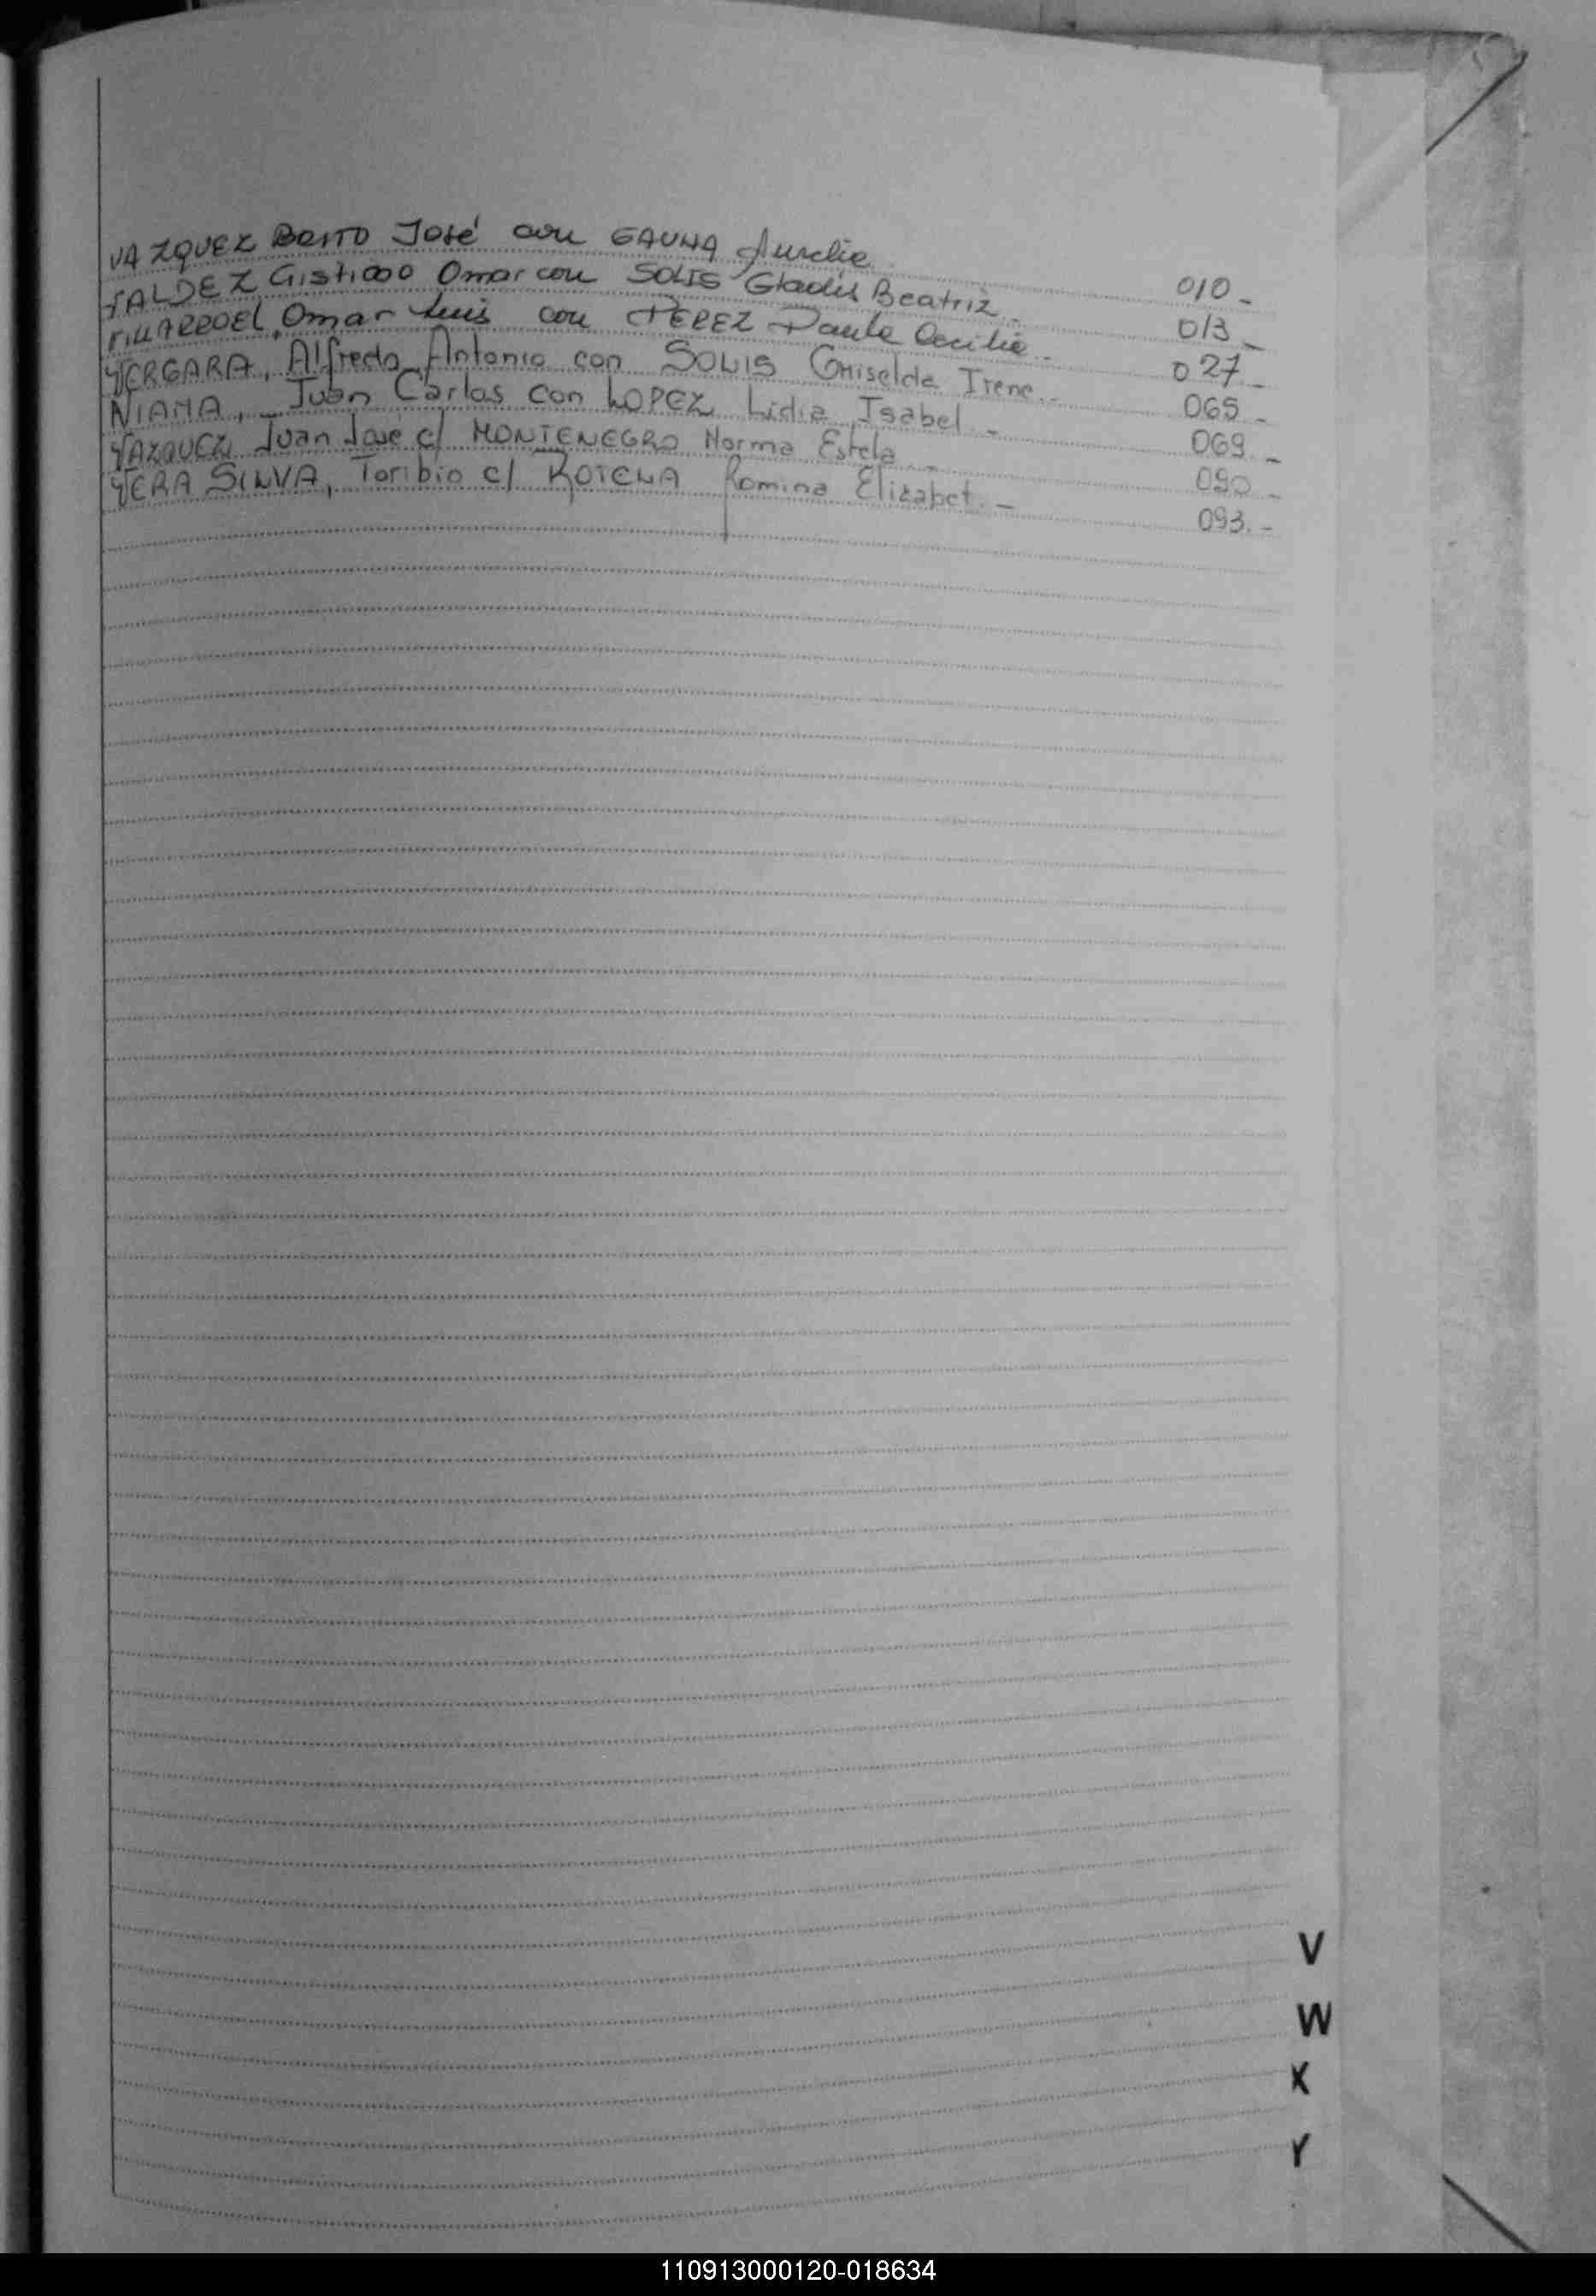 VAZQUEZ Benito José con GAUNA Aurelia 010_
VALDEZ Omar con SOLIS Gladis Beatriz._ 013_
VILLARROEL Omar Luis con PEREZ Paula Cecilia._ 027_
VERGARA, Alfredo Antonio con SOLIS Griselda Irene._ 065_
VIANA, Juan Carlos con LOPEZ Lidia Isabel._ 069._
VAZQUEZ, Juan Jose c/ MONTENEGRO Norma Estela._ 090_
VERA SILVA, Toribio c/ Romina Elizabet._ 093._
V
W
X
Y
110913000120-018634